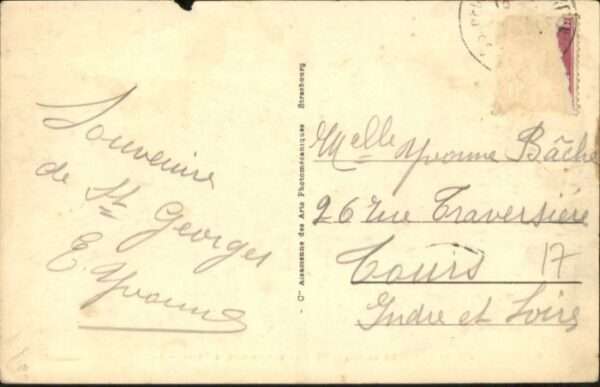 Souvenir
de St Georges
E. Yvonne
- Cie Alsacienne des Arts Photomécaniques Strasbourg
Melle Yvonne Bâche
26 rue Traversière
Tours 17
Indre et Loire